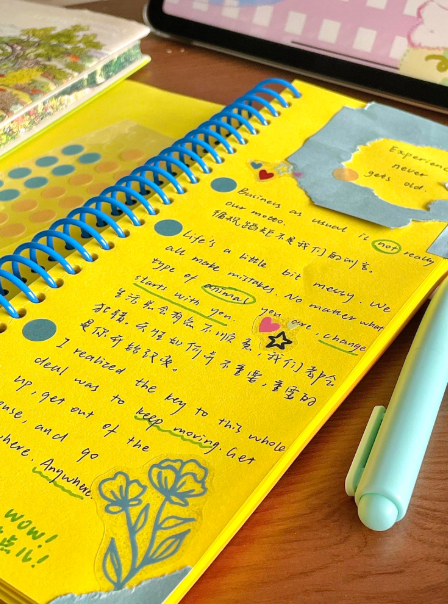 Experience
never
gets old.
Business as usual is not really
our motto.
循规蹈矩不是我们的风格。
Life's a little bit messy. We
all make mistakes. No matter what
type of animal you are, change
starts with you.
生活总会有点不顺意，我们都会
犯错。
是你开始改变。
I realized the key to this whole
deal was to keep moving. Get
up, get out of the
and go
Anywhere.
WOW!
点儿!